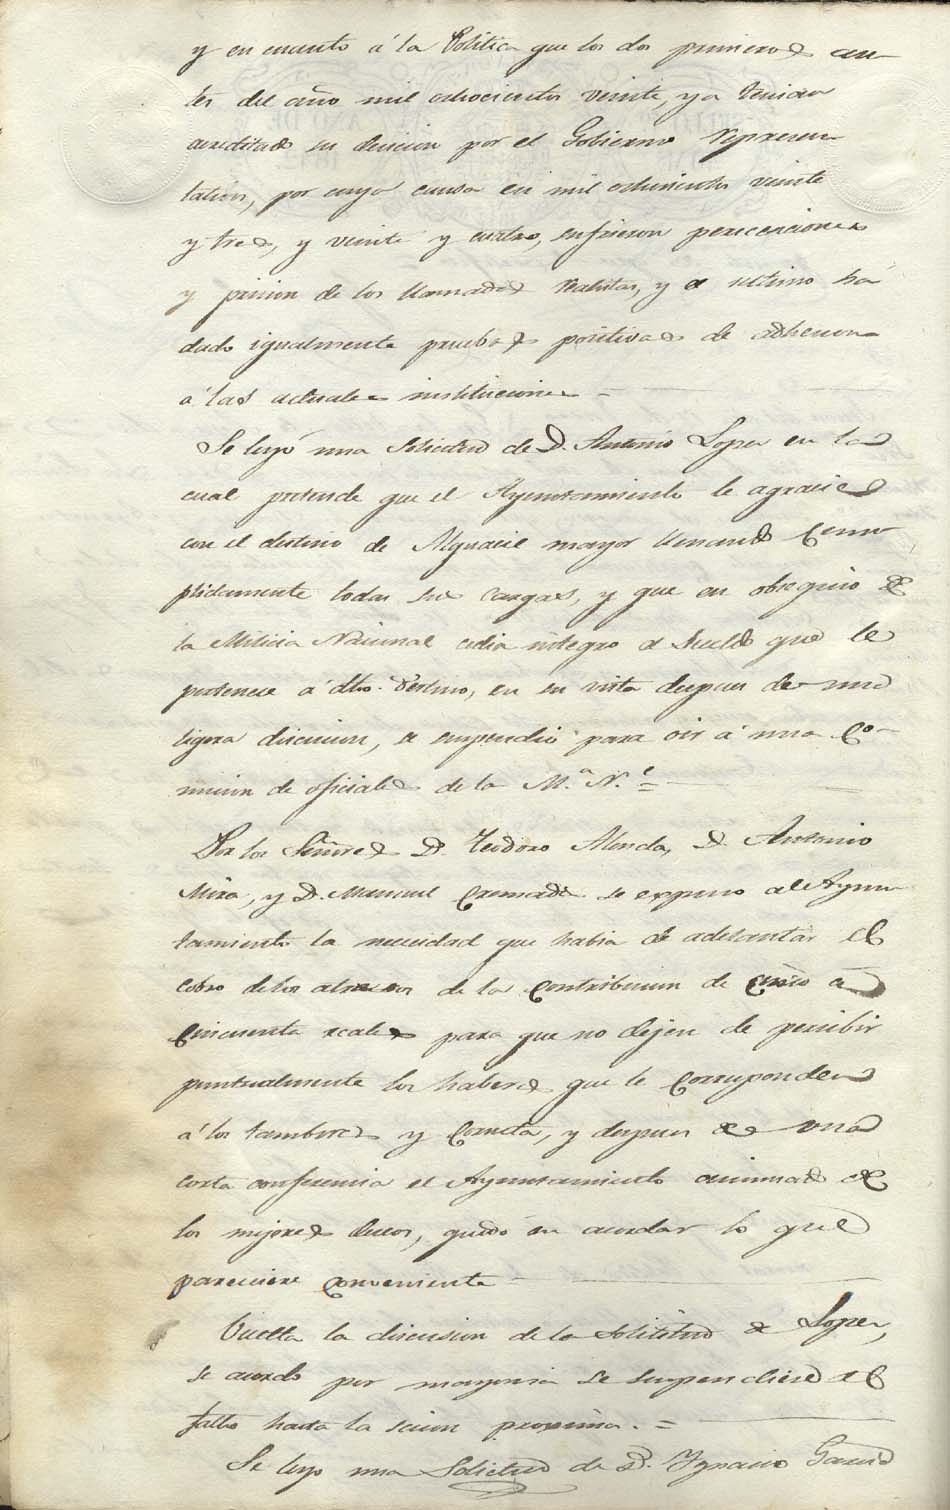 y en cuanto á la Politica que los dos primeros an-
tes del año mil ochocientos veinte, ya tenian
acreditada su decicion por el Gobierno represen-
tativo, por cuya causa en mil ochocientos veinte
y tres, y veinte y cuatro, sufrieron percecuciones
y pricion de los llamados realistas, y el ultimo há
dado igualmente pruebas positivas de adhecion
á las actuales instituciones =
Se leyó una solicitud de D. Antonio Lopez en la
cual pretende que el Ayuntamiento le agracie
con el destino de Alguacil mayor llenando Cum-
plidamente todas sus cargas, y que en obsequio de
la Milicia Nacional cedia integro el sueldo que le
pertenece á dho. destino, en su vista despues de una
ligera discucion, se suspendió para oir á una Co-
micion de oficiales de la M.a N.l =
Por los Señores D. Teodoro Alenda, D. Antonio
Mira, y D. Manuel Cremades se expuso al Ayun-
tamiento la necesidad que habia de adelantar el
cobro de los atrasos de la Contribucion de Cinco á
Cincuenta reales para que no dejen de percibir
puntualmente los haberes que le Corresponden
á los tambores y Corneta, y despues de una
corta conferencia el Ayuntamiento animado de
los mejores deceos, quedó en acordar lo que
pareciere Conveniente
Vuelta la discusion de la Solicitud de Lopez,
se acordo por mayoria se suspendiese el
fallo hasta la secion proxima. =
Se leyo una Solicitud de D. Ygnacio Garcia